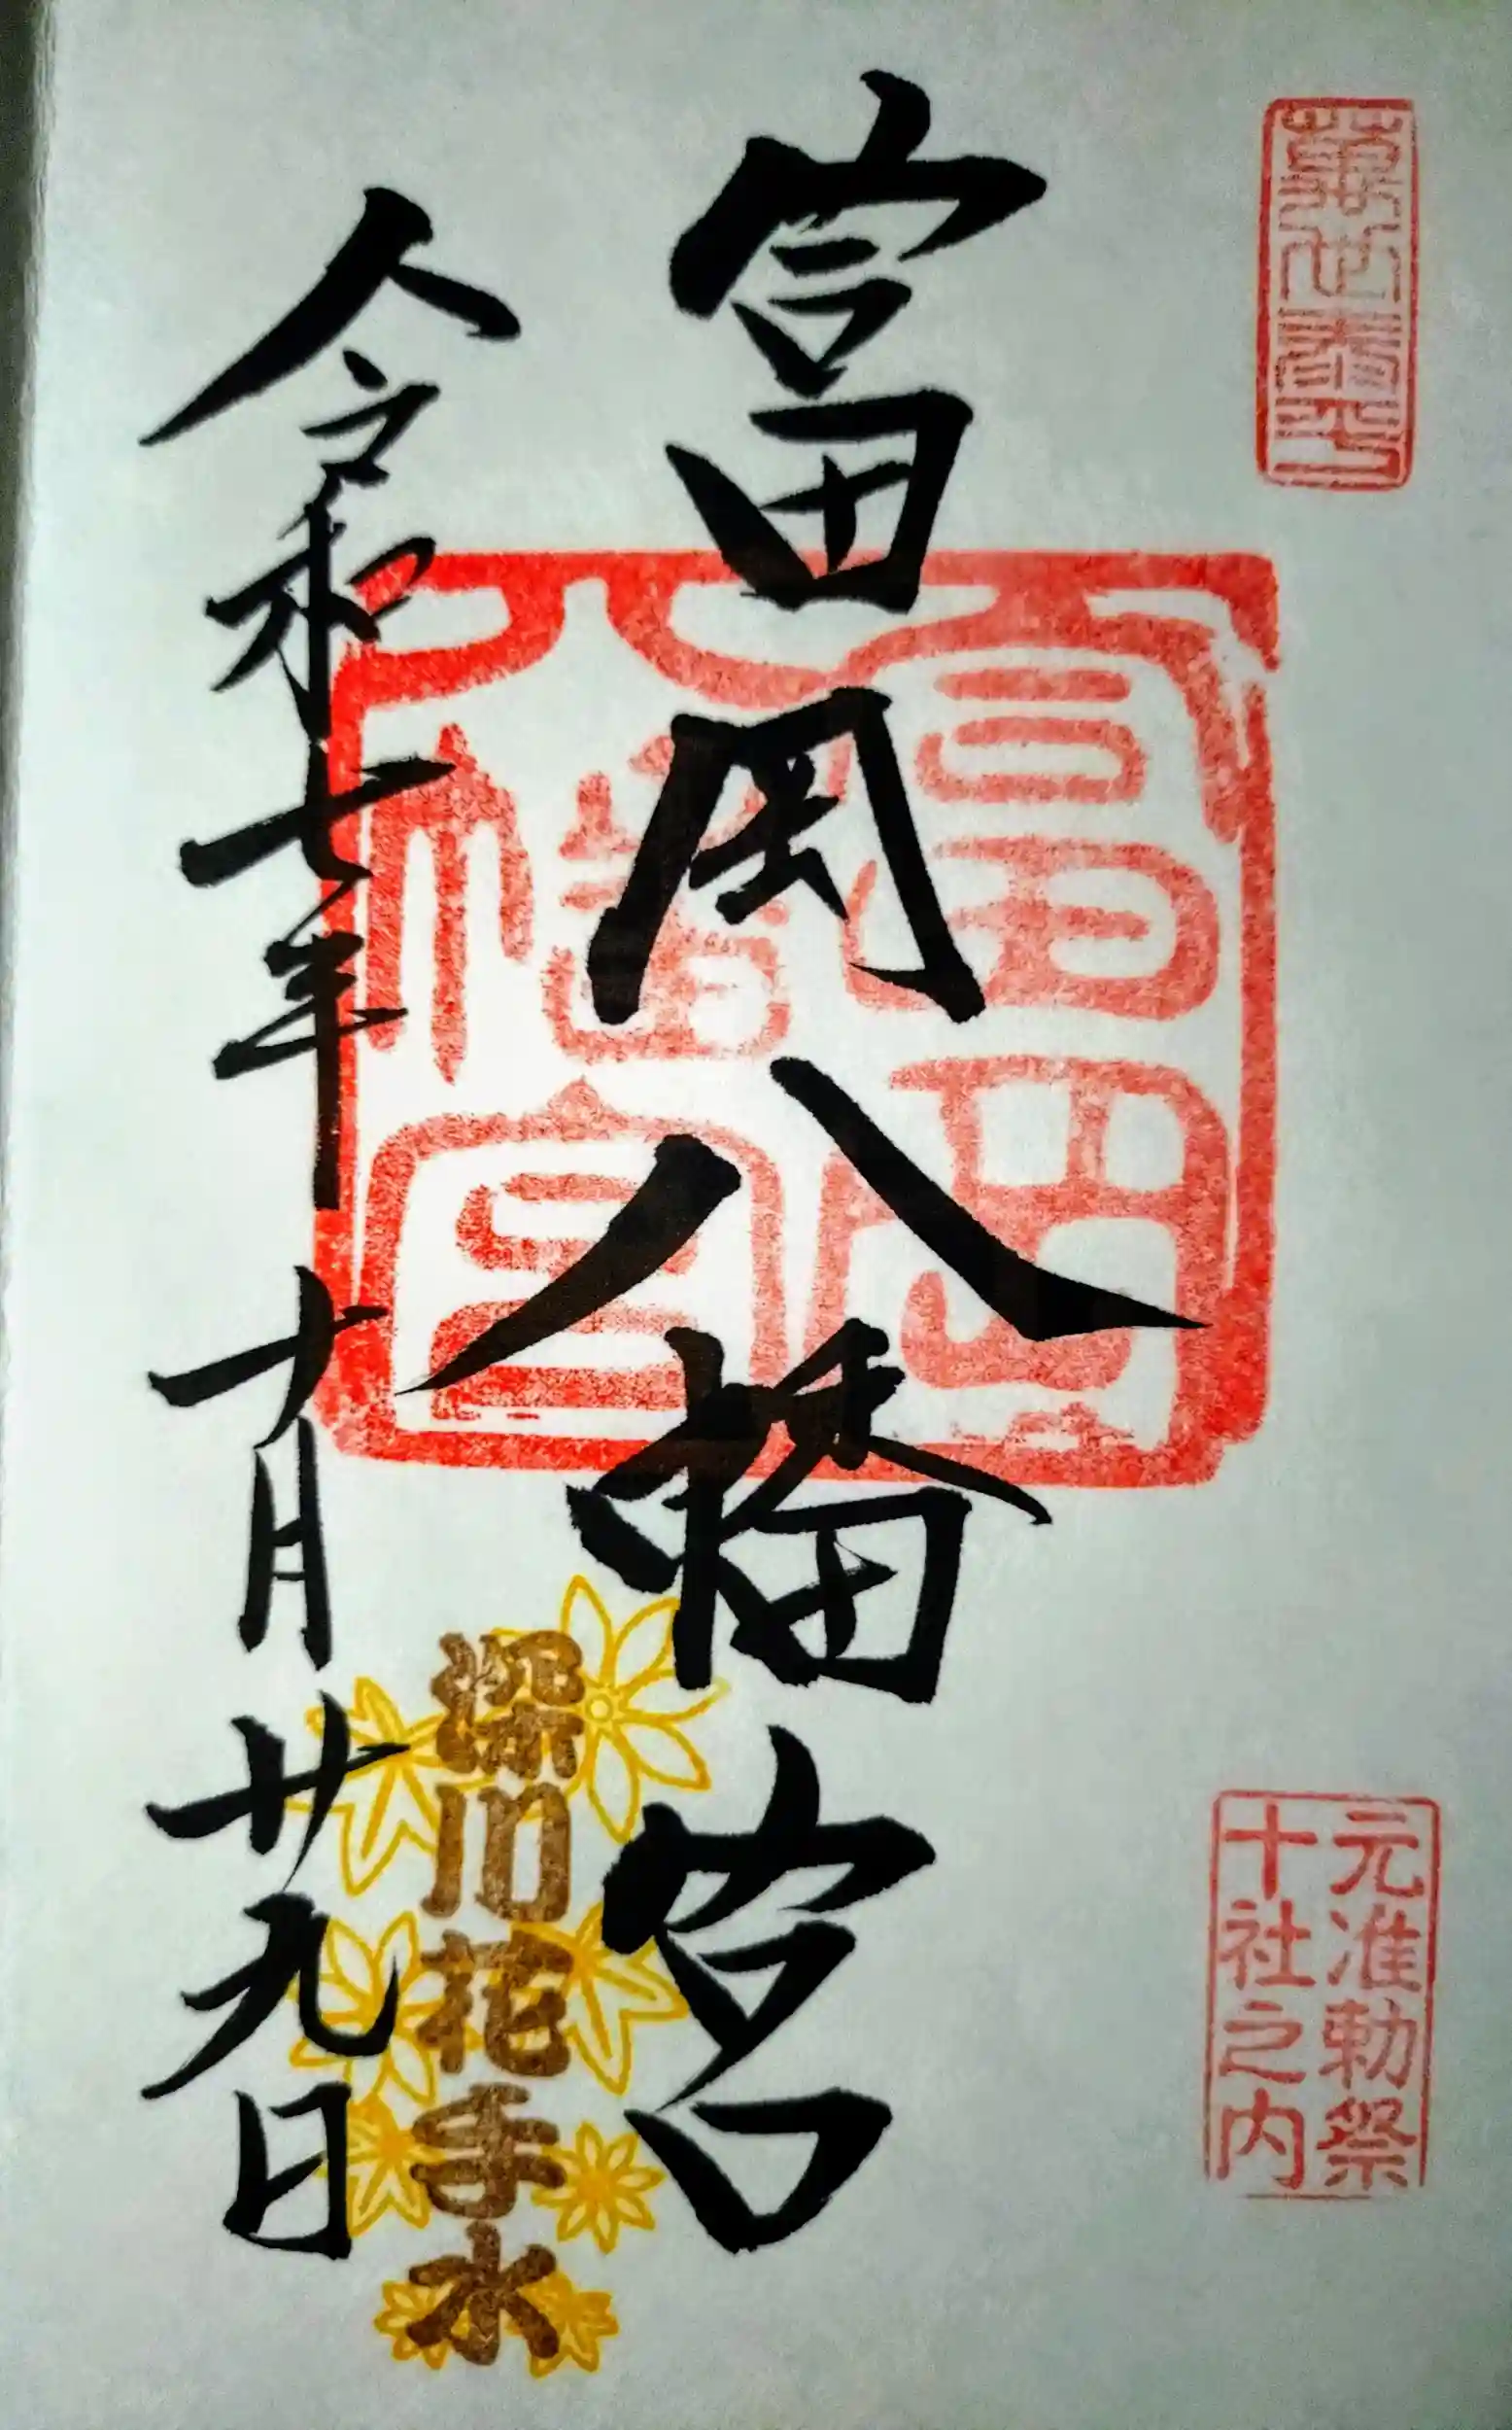 萬世泰平
元准勅祭
十社之内
富岡八幡宮
富岡
八幡宮
深川花手水
令和七年十月廿九日